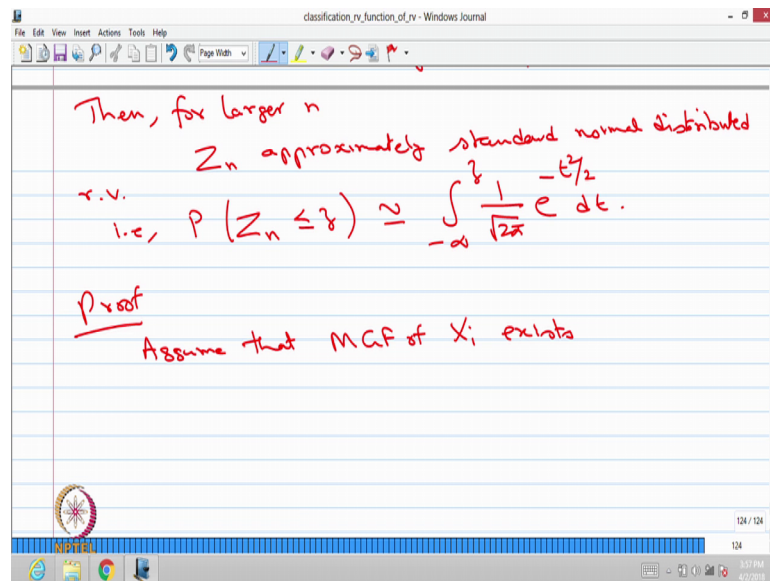 classification_rv_function_of_rv - Windows Journal
File Edit View Insert Actions Tools Help
Page Width
Then, for larger n
Zn approximately standard normal distributed
r.v.
i.e, P(Zn ≤ z) ≃ ∫_{-∞}^{z} 1/√2π e^{-t²/2} dt.
Proof
Assume that MGF of Xi exists
NPTEL
124 / 124
124
3:57 PM
4/2/2018